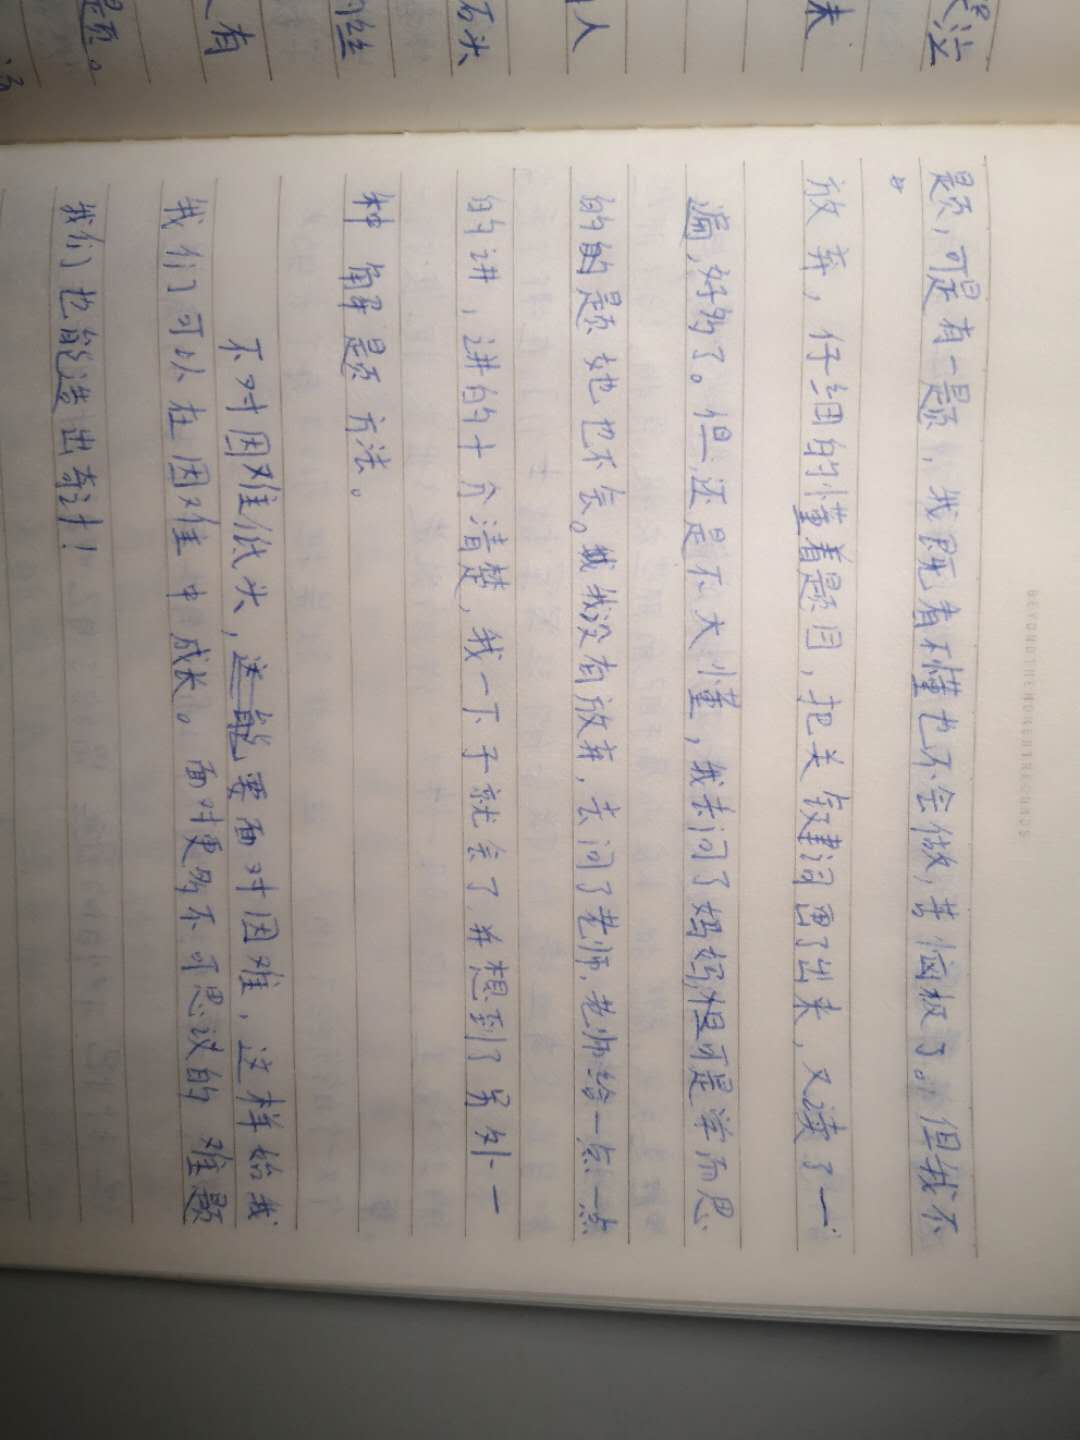 题，可是有一题，我既看不懂也不会做，苦恼极了。但我不
放弃，仔细的懂着题目，把关键词画了出来，又读了一
遍，好多了。但还是不大懂，我去问了妈妈，但可是学而思
的的题她也不会。我没有放弃，去问了老师，老师给一点一点
的讲，讲的十分清楚，我一下子就会了并想到了另外一
种解题方法。
不对困难低头，要面对困难，这样始我
我们可以在困难中成长。面对更多不可思议的难题
我们也能造出奇计！
BEYOND THE MOMENT RECORDS
石头
人
未
有
题。